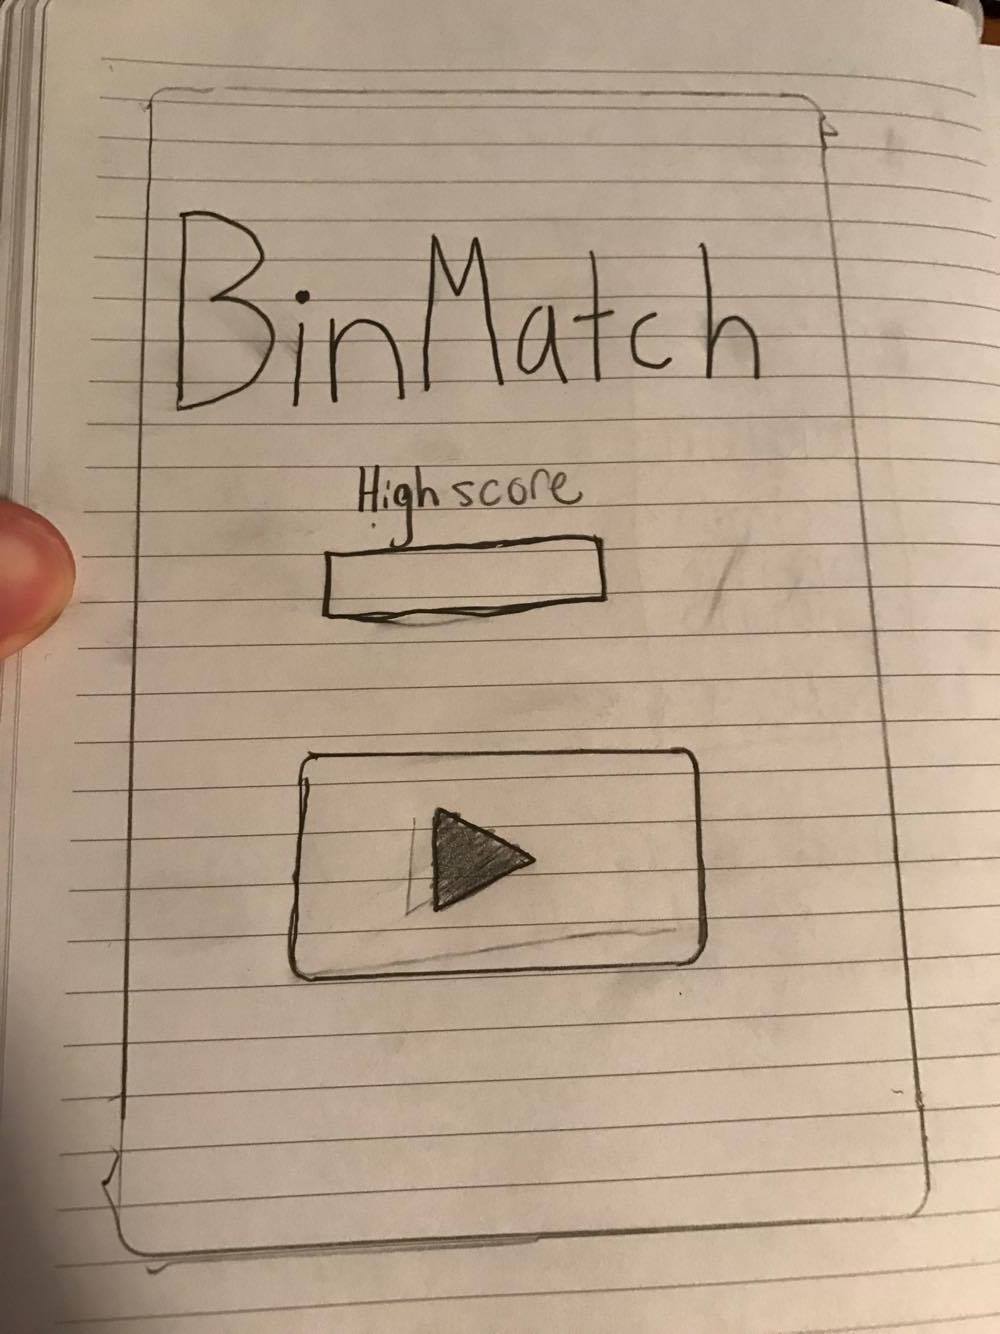 BinMatch
High score